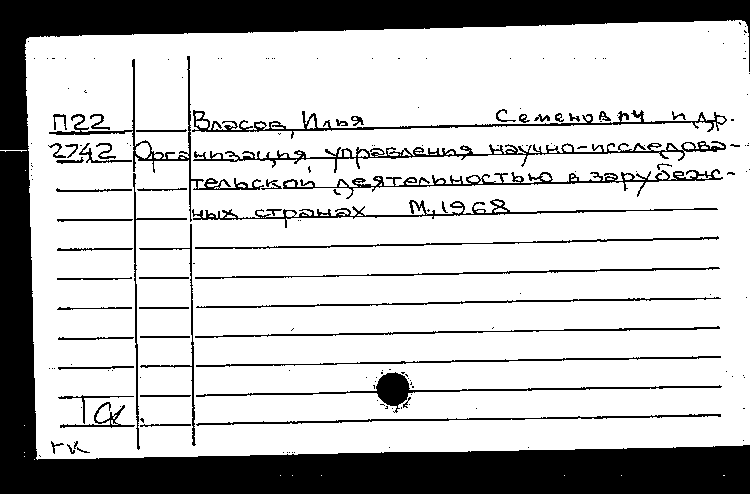 П22 Власов, Илья Семенович и др.
2742 Организация управления научно-исследова-
тельской деятельностью в зарубеж-
ных странах. М., 1968
гк